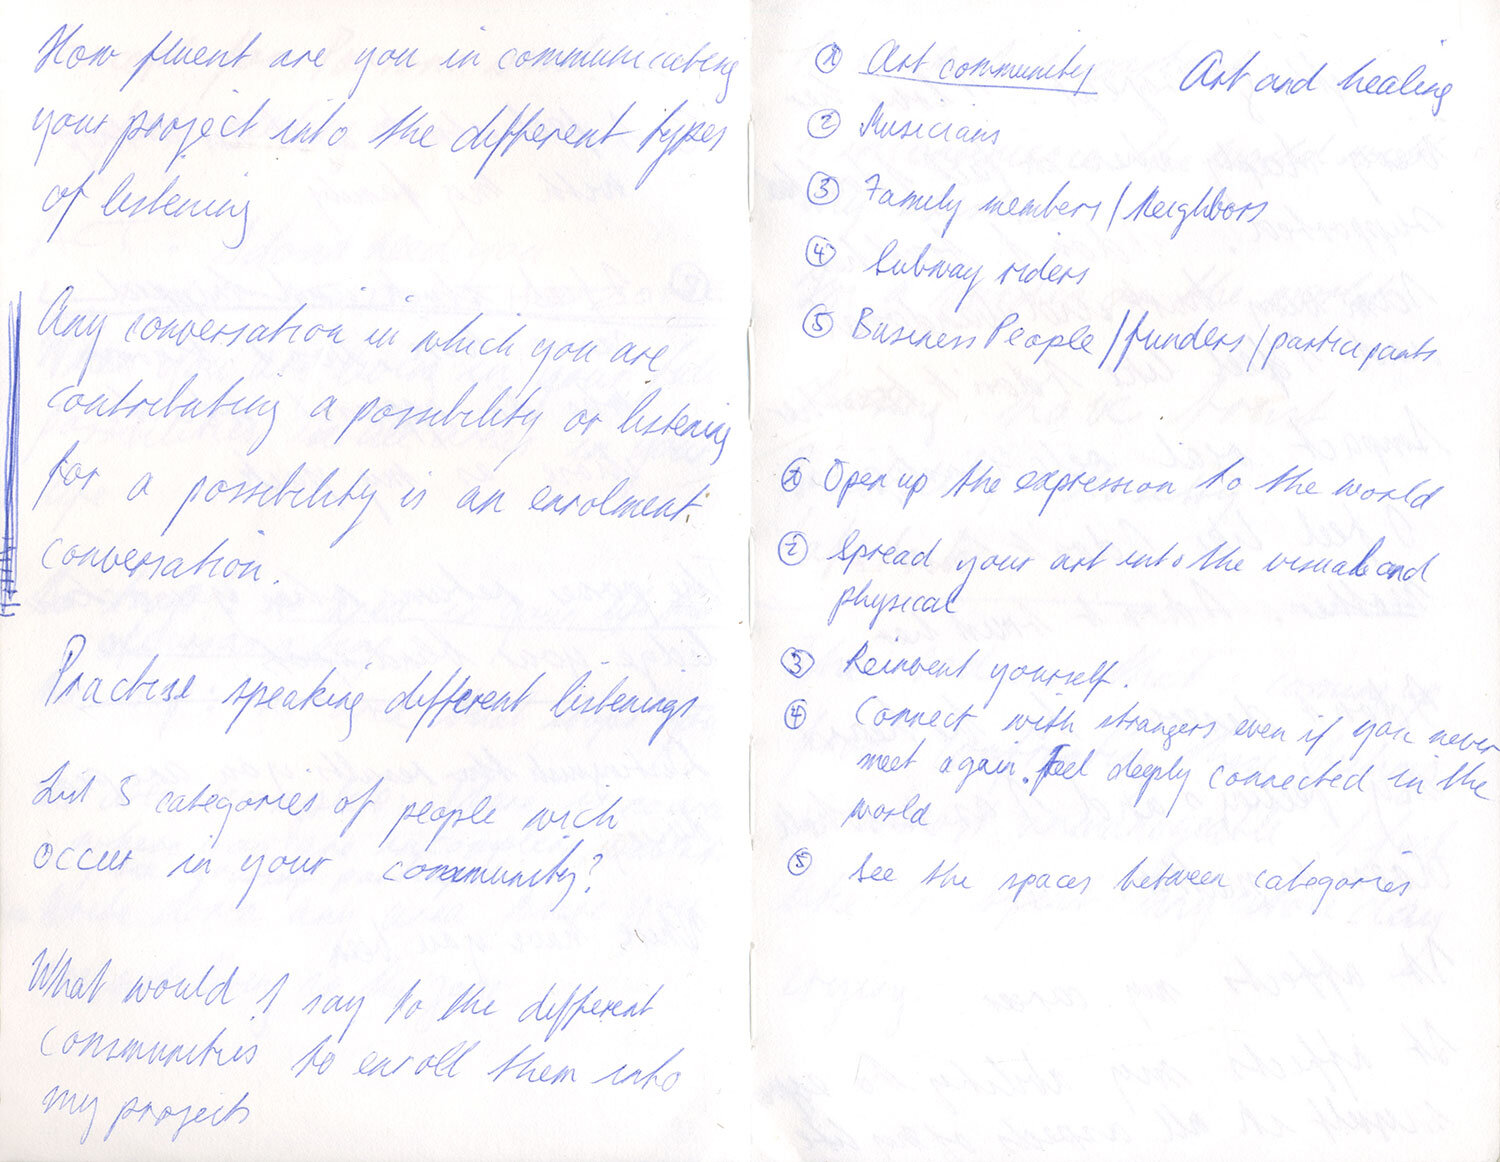 How fluent are you in communicating
your project into the different types
of listening
Any conversation in which you are
contributing a possibility or listening
for a possibility is an enrolment
conversation.
Practise speaking different listenings
List 5 categories of people wich
occur in your community?
What would I say to the different
communities to enroll them into
my projects
① Art community Art and healing
② Musicians
③ Family members / Neighbors
④ Subway riders
⑤ Business People / funders / participants
① Open up the expression to the world
② Spread your art into the visual and
physical
③ Reinvent yourself.
④ Connect with strangers even if you never
meet again. Feel deeply connected in the
world
⑤ See the spaces between categories